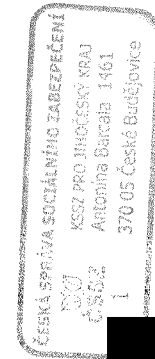 ČESKÁ SPRÁVA SOCIÁLNÍHO ZABEZPEČENÍ
KSSZ PRO JIHOČESKÝ KRAJ
Antonína Barcala 1461
ČSSZ
370 05 České Budějovice
1